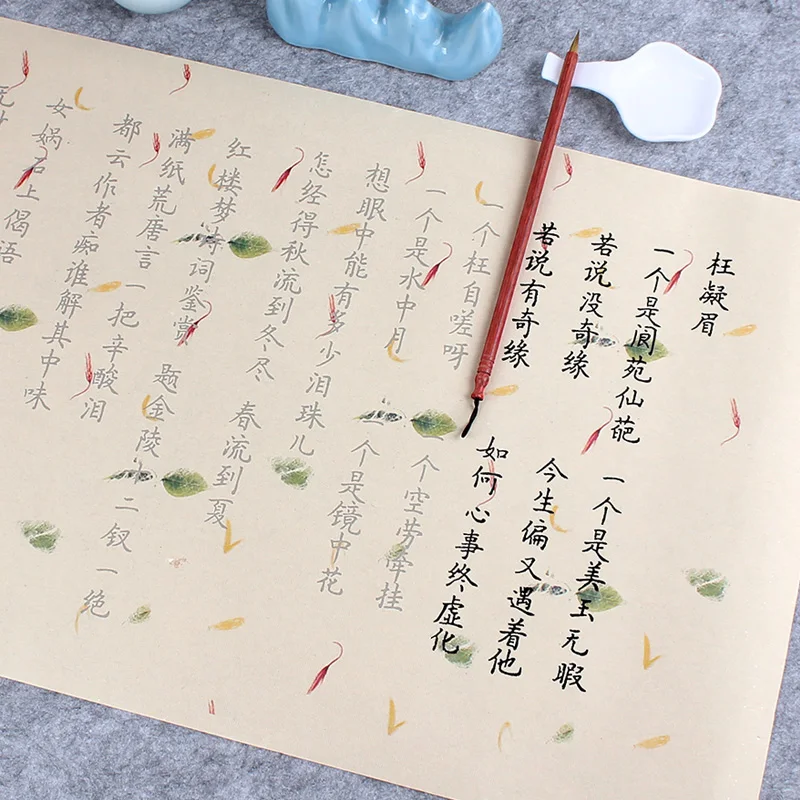 枉凝眉
一个是阆苑仙葩 一个是美玉无暇
若说没奇缘 今生偏又遇着他
若说有奇缘 如何心事终虚化
一个枉自嗟呀 一个空劳牵挂
一个是水中月 一个是镜中花
想眼中能有多少泪珠儿
怎经得秋流到冬尽 春流到夏
红楼梦诗词鉴赏 题金陵十二钗一绝
满纸荒唐言 一把辛酸泪
都云作者痴 谁解其中味
女娲石上偈语